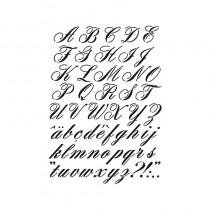 A B C D E F
F G H I J
K L M N O
P Q R S T
U V W X Y Z
ä b c d e ë f g h i j
k l m n o p q r s t
"t u v w x y z?!:,."